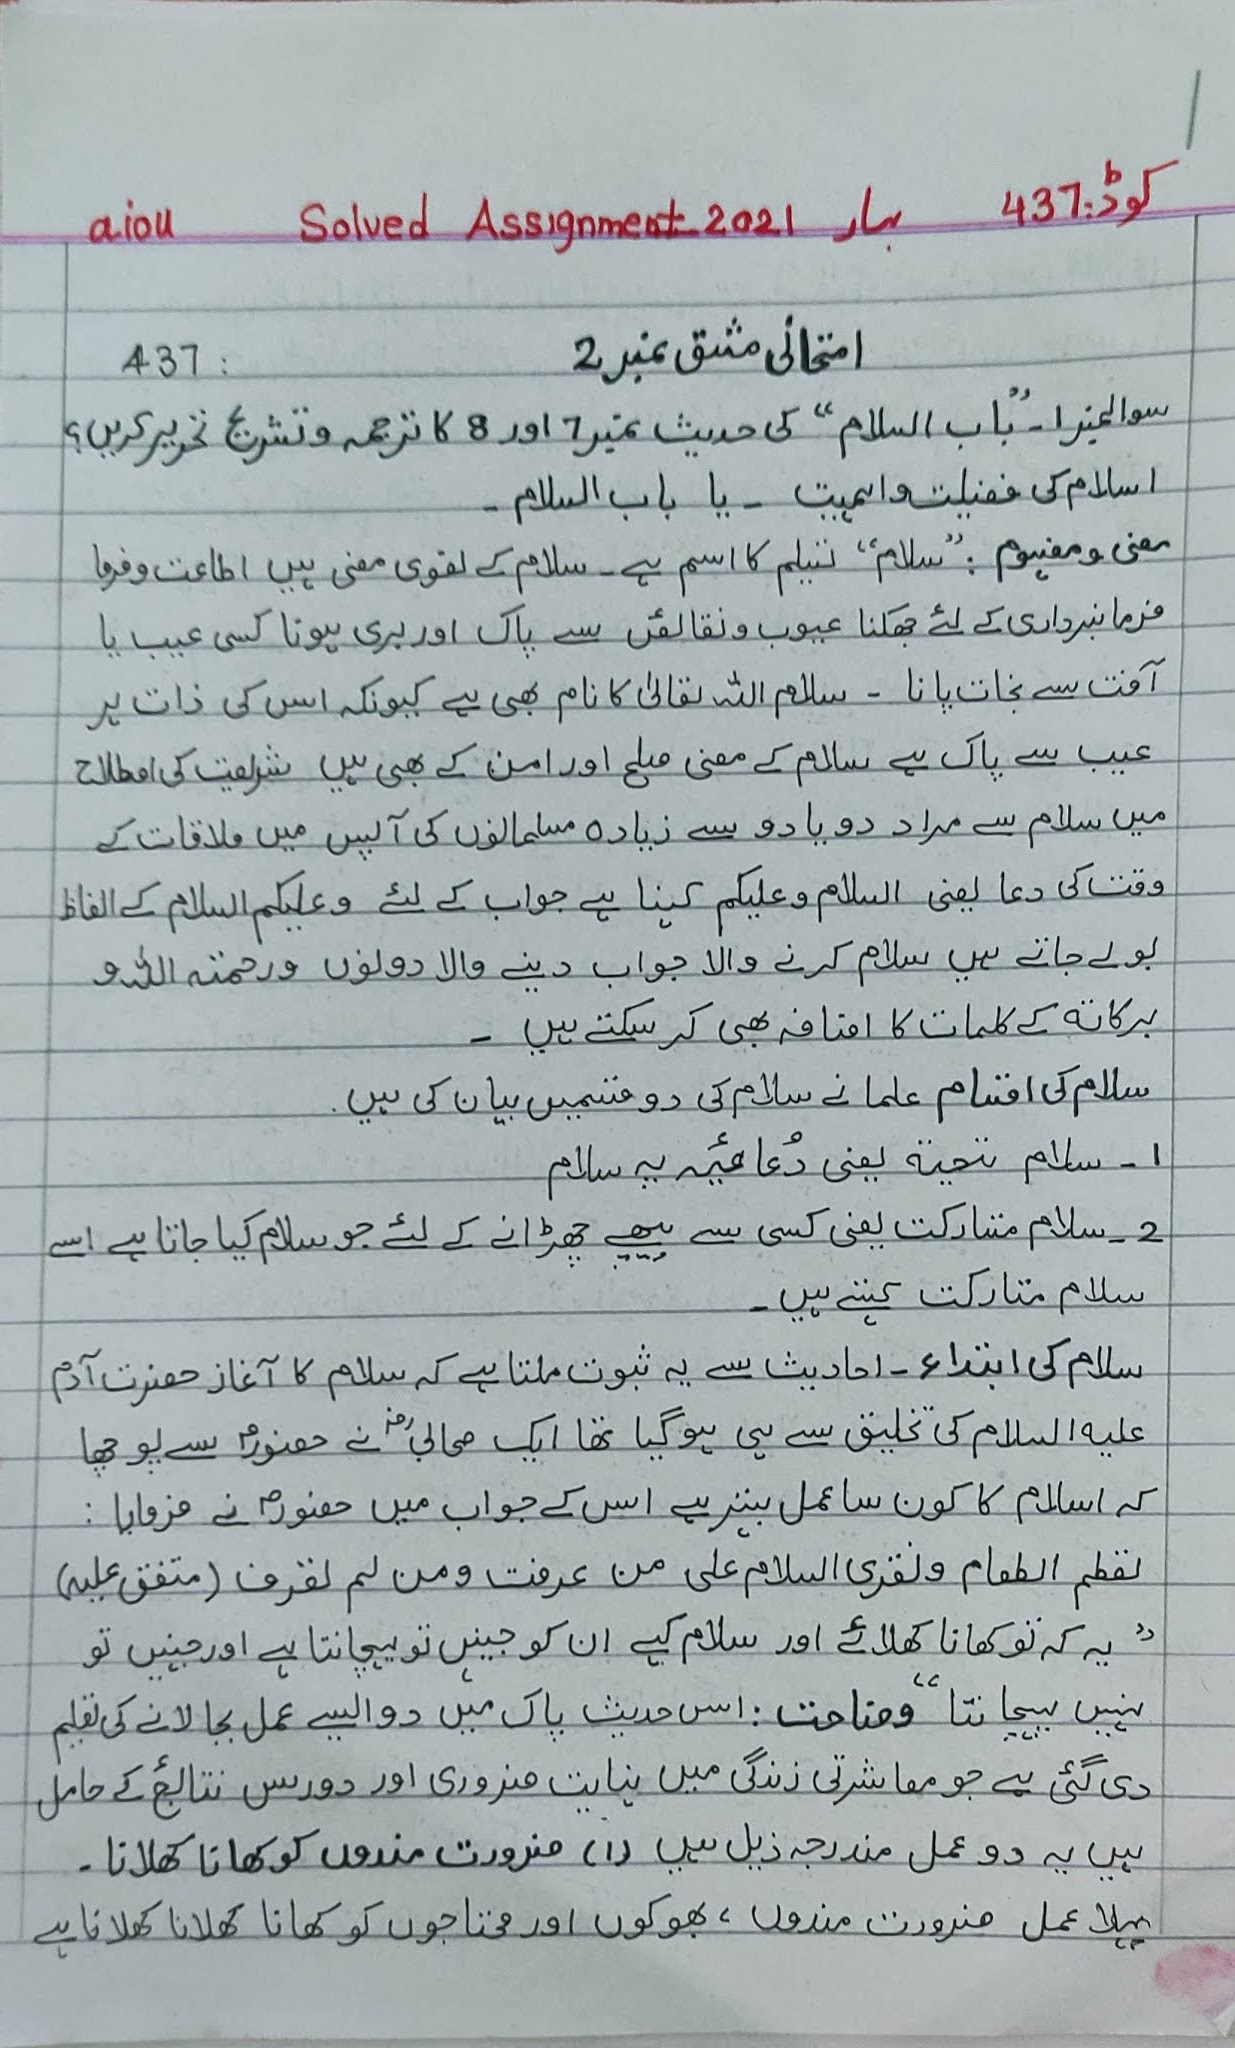 aiou Solved Assignment 2021 بہار کوڈ: 437
امتحانی مشق نمبر 2 437 :
سوالنمبر 1۔ "باب السلام" کی حدیث نمبر 7 اور 8 کا ترجمہ وتشریح تحریر کریں؟
اسلام کی فضیلت واہمیت ۔ یا باب السلام ۔
معنی ومفہوم : "سلام" تسلیم کا اسم ہے۔ سلام کے لغوی معنی ہیں اطاعت وفرما
فرمانبرداری کے لئے جھکنا عیوب ونقائص سے پاک اور بری ہونا کسی عیب یا
آفت سے نجات پانا ۔ سلام اللہ تعالیٰ کا نام بھی ہے کیونکہ اس کی ذات ہر
عیب سے پاک ہے سلام کے معنی صلح اور امن کے بھی ہیں شریعت کی اصطلاح
میں سلام سے مراد دو یا دو سے زیادہ مسلمانوں کی آپس میں ملاقات کے
وقت کی دعا یعنی السلام وعلیکم کہنا ہے جواب کے لئے وعلیکم السلام کے الفاظ
بولے جاتے ہیں سلام کرنے والا جواب دینے والا دونوں ورحمتہ اللہ و
برکاتہ کے کلمات کا اضافہ بھی کر سکتے ہیں ۔
سلام کی اقسام علما نے سلام کی دو قسمیں بیان کی ہیں۔
1 ۔ سلام تحیتہ یعنی دُعائیہ یہ سلام
2۔ سلام متارکت یعنی کسی سے پیچھے چھڑانے کے لئے جو سلام کیا جاتا ہے اسے
سلام متارکت کہتے ہیں ۔
سلام کی ابتداء ۔ احادیث سے یہ ثبوت ملتا ہے کہ سلام کا آغاز حضرت آدم
علیہ السلام کی تخلیق سے ہی ہو گیا تھا ایک صحابیؓ نے حضورؐ سے پوچھا
کہ اسلام کا کون سا عمل بہتر ہے اس کے جواب میں حضورؐ نے فرمایا :
تطعم الطعام وتقری السلام علی من عرفت ومن لم تعرف (متفق علیہ)
"یہ کہ تو کھانا کھلائے اور سلام کہے ان کو جنہیں تو پہچانتا ہے اور جنہیں تو
نہیں پہچانتا" وضاحت : اس حدیث پاک میں دو ایسے عمل بجا لانے کی تعلیم
دی گئی ہے جو معاشرتی زندگی میں نہایت ضروری اور دور رس نتائج کے حامل
ہیں یہ دو عمل مندرجہ ذیل ہیں (1) ضرورت مندوں کو کھانا کھلانا ۔
پہلا عمل ضرورت مندوں ، بھوکوں اور محتاجوں کو کھانا کھلانا کھلانا ہے